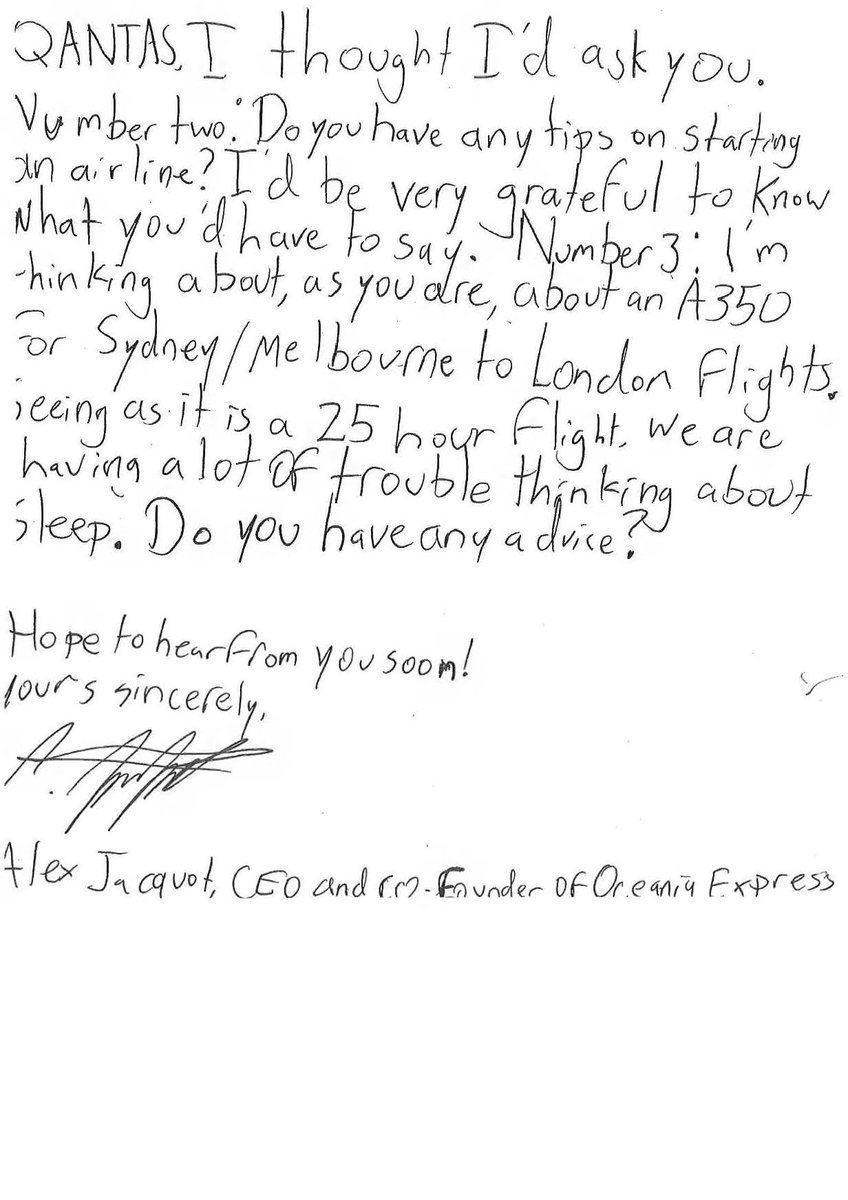 QANTAS, I thought I'd ask you.
Number two: Do you have any tips on starting
an airline? I'd be very grateful to know
what you'd have to say. Number 3: I'm
thinking about, as you are, about an A350
for Sydney/Melbourne to London flights.
Seeing as it is a 25 hour flight, we are
having a lot of trouble thinking about
sleep. Do you have any advice?
Hope to hear from you soon!
Yours sincerely,
A.
Alex Jacquot, CEO and co-founder of Oceania Express